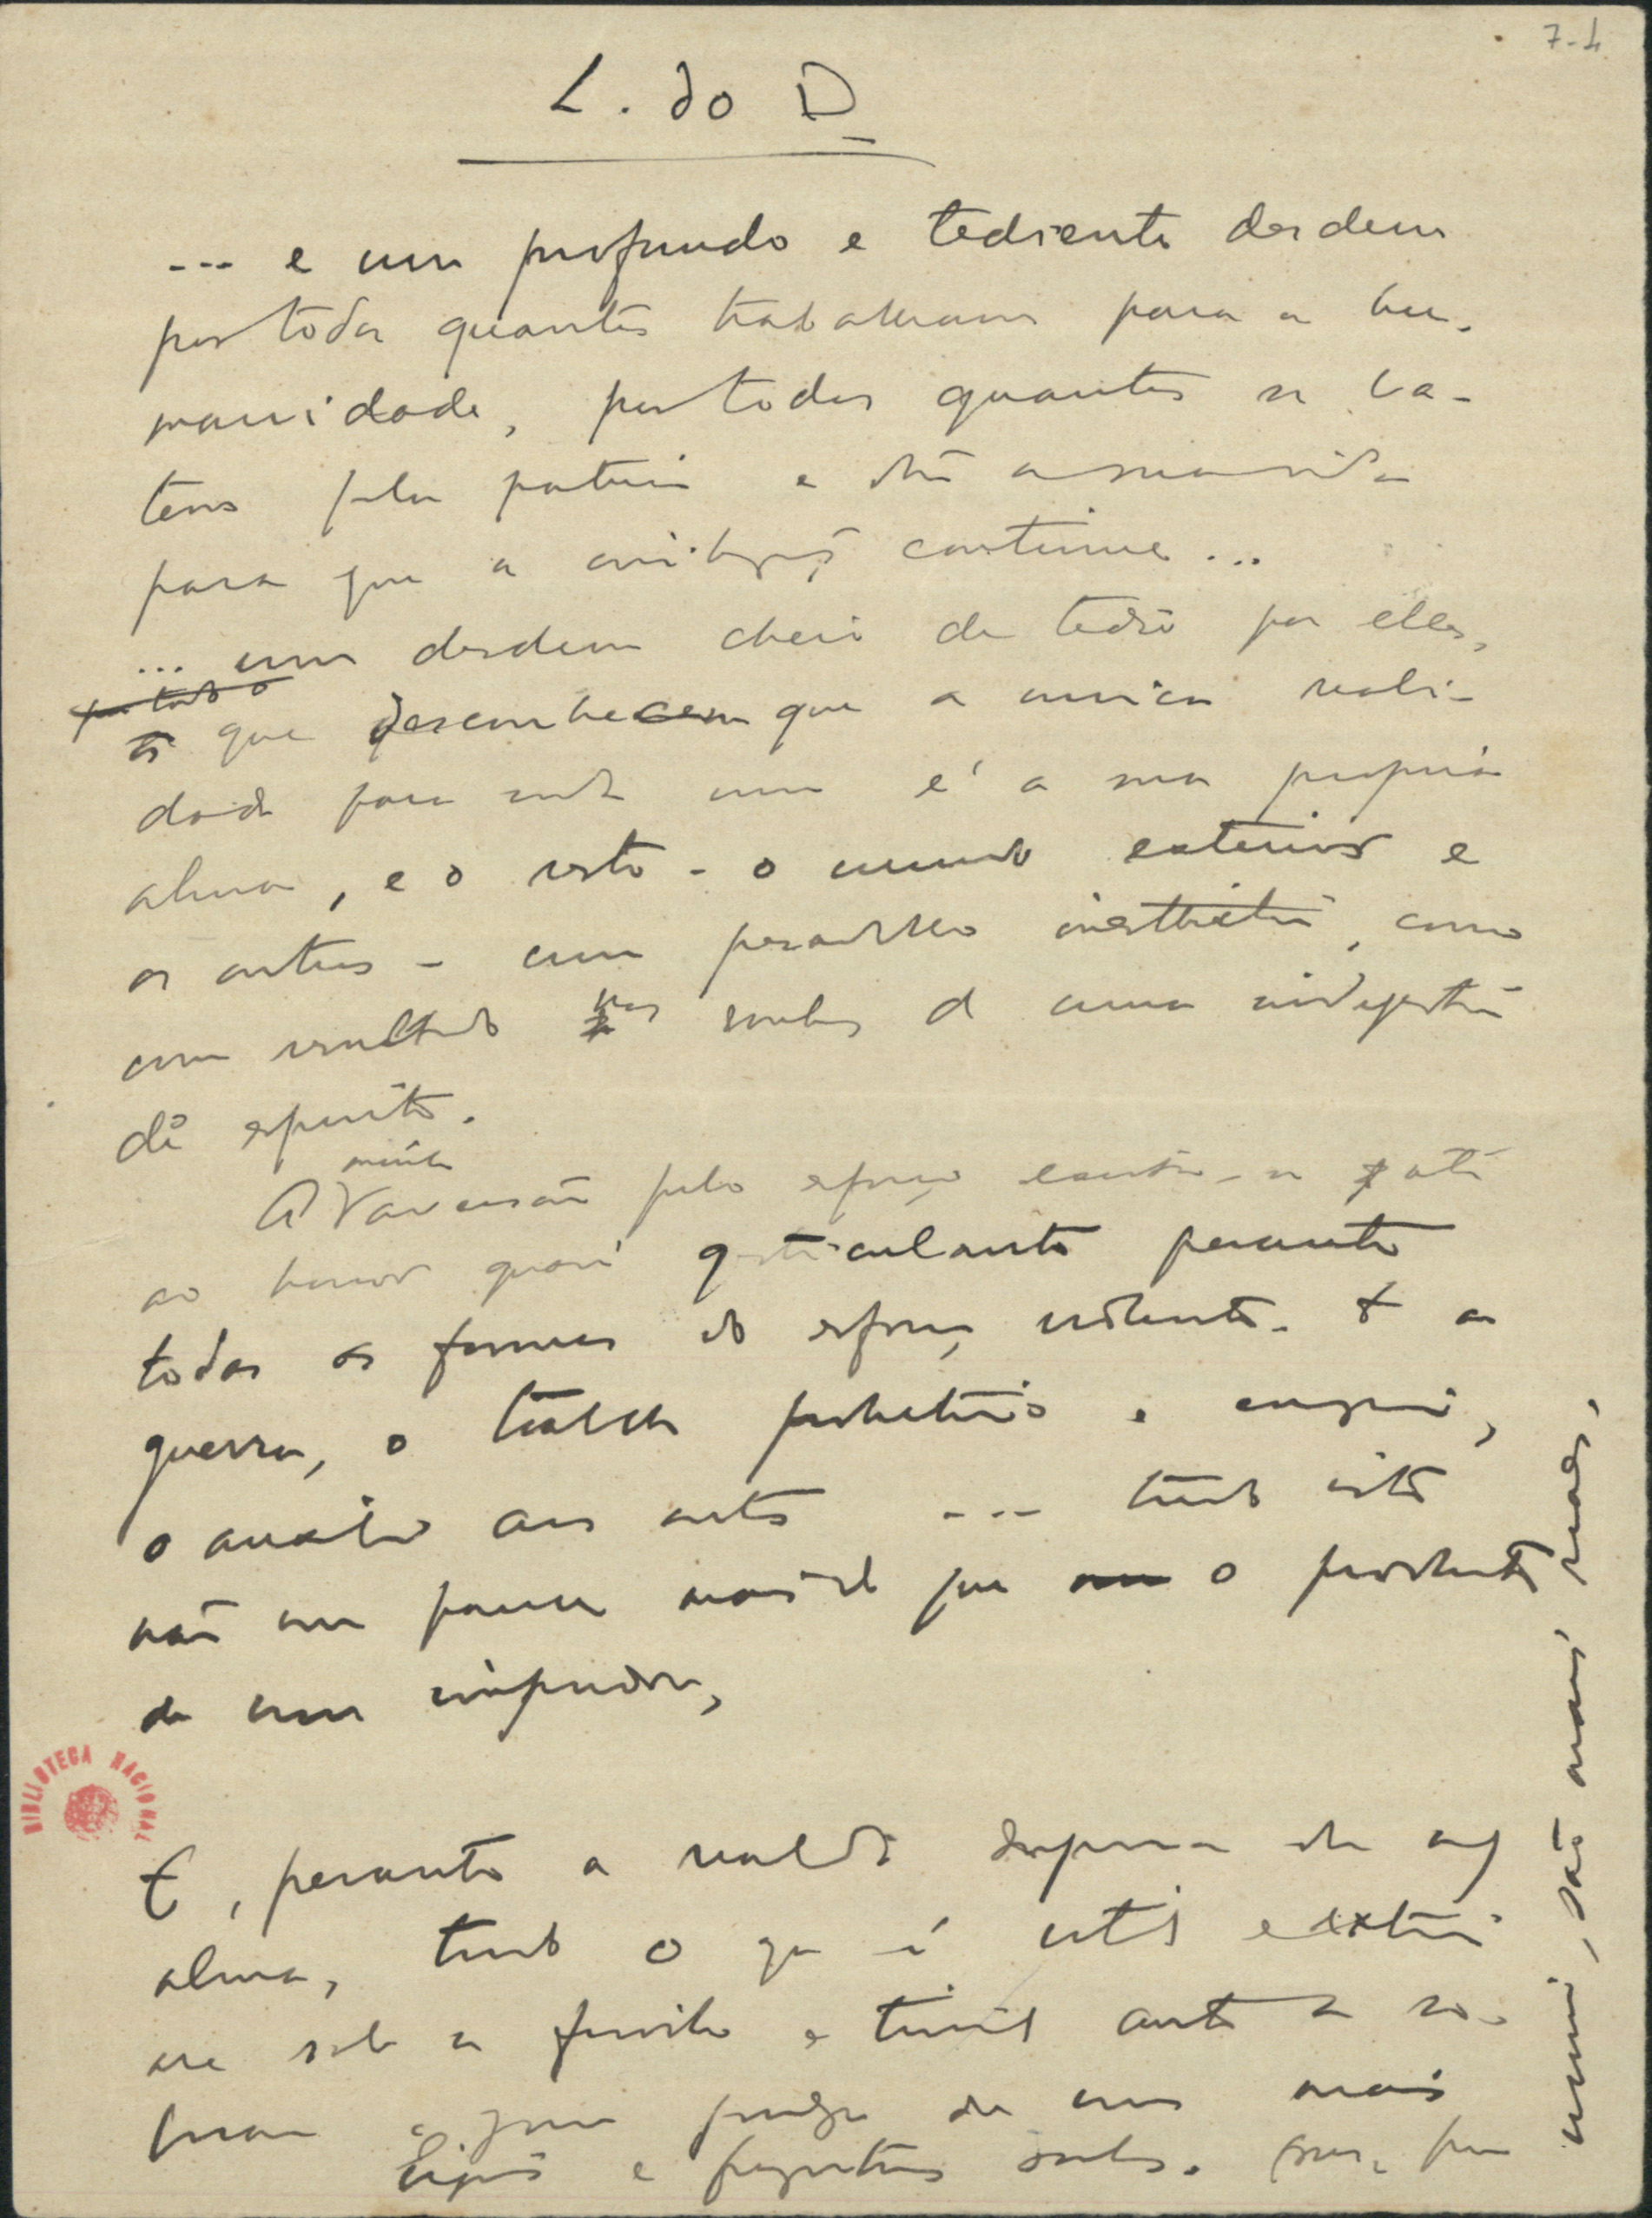 7-4
L. do D
... e um profundo e tediento desdem
por todos quantos trabalham para a hu-
manidade, por todos quantos se ba-
tem pela patria e dão a sua vida
para que a civilização continue...
... um desdem cheio de tedio por elles,
por todo o
que desconhecem que a unica reali-
dade para cada um é a sua propria
alma, e o resto - o mundo exterior e
os outros - um pesadelo inesthetico, como
um resultado nos sonhos de uma indigestão
de espirito.
minha
A aversão pelo esforço excita-se até
ao horror quasi gesticulante perante
todas as formas do esforço violento. E a
guerra, o trabalho productivo e energico,
o auxilio aos outros ... tudo isto
não me parece mais que o producto
de um impudor,
E, perante a realidade suprema da m/
alma, tudo o que é util e exterior
me sabe a frivolo e trivial ante a so-
grandeza dos meus mais
e frequentes sonhos. Esses, para
mim, são mais reaes.
BIBLIOTECA NACIONAL